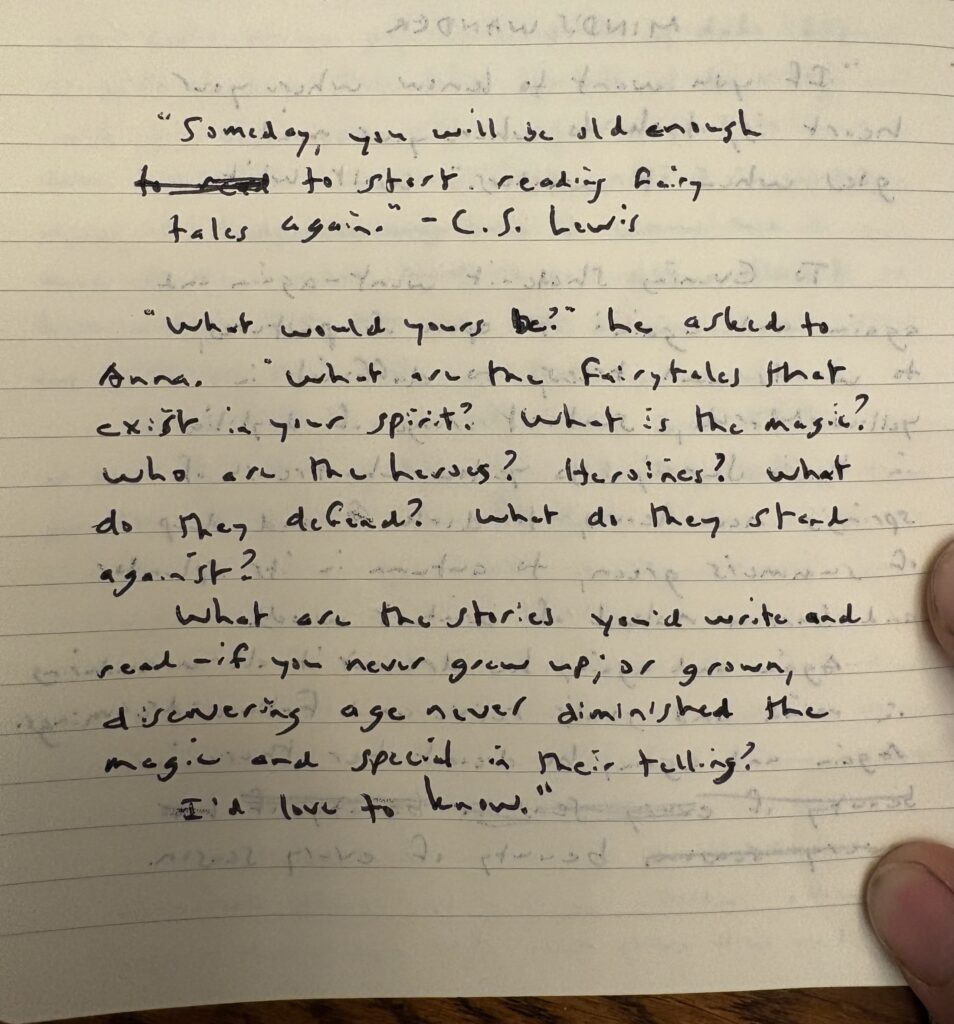 "Someday, you will be old enough
to read to start reading fairy
tales again." - C.S. Lewis
"What would yours be?" he asked to
Anna. "What are the fairytales that
exist in your spirit? What is the magic?
Who are the heroes? Heroines? What
do they defend? What do they stand
against?
What are the stories you'd write and
read - if you never grew up; or grown,
discovering age never diminished the
magic and special in their telling?
I'd love to know."